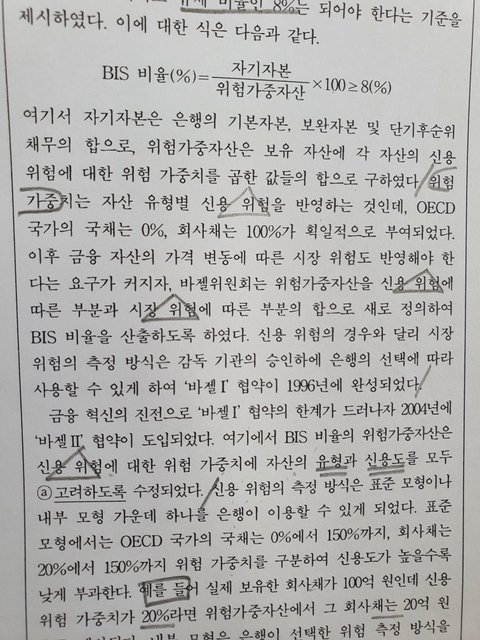 규제 비율인 8%는 되어야 한다는 기준을
제시하였다. 이에 대한 식은 다음과 같다.
BIS 비율(%)=자기자본/위험가중자산×100≥8(%)
여기서 자기자본은 은행의 기본자본, 보완자본 및 단기후순위
채무의 합으로, 위험가중자산은 보유 자산에 각 자산의 신용
위험에 대한 위험 가중치를 곱한 값들의 합으로 구하였다. 위험
가중치는 자산 유형별 신용 위험을 반영하는 것인데, OECD
국가의 국채는 0%, 회사채는 100%가 획일적으로 부여되었다.
이후 금융 자산의 가격 변동에 따른 시장 위험도 반영해야 한
다는 요구가 커지자, 바젤위원회는 위험가중자산을 신용 위험에
따른 부분과 시장 위험에 따른 부분의 합으로 새로 정의하여
BIS 비율을 산출하도록 하였다. 신용 위험의 경우와 달리 시장
위험의 측정 방식은 감독 기관의 승인하에 은행의 선택에 따라
사용할 수 있게 하여 '바젤Ⅰ' 협약이 1996년에 완성되었다.
금융 혁신의 진전으로 '바젤Ⅰ' 협약의 한계가 드러나자 2004년에
'바젤Ⅱ' 협약이 도입되었다. 여기에서 BIS 비율의 위험가중자산은
신용 위험에 대한 위험 가중치에 자산의 유형과 신용도를 모두
ⓐ고려하도록 수정되었다. 신용 위험의 측정 방식은 표준 모형이나
내부 모형 가운데 하나를 은행이 이용할 수 있게 되었다. 표준
모형에서는 OECD 국가의 국채는 0%에서 150%까지, 회사채는
20%에서 150%까지 위험 가중치를 구분하여 신용도가 높을수록
낮게 부과한다. 예를 들어 실제 보유한 회사채가 100억 원인데 신용
위험 가중치가 20%라면 위험가중자산에서 그 회사채는 20억 원
은행이 선택한 위험 측정 방식을